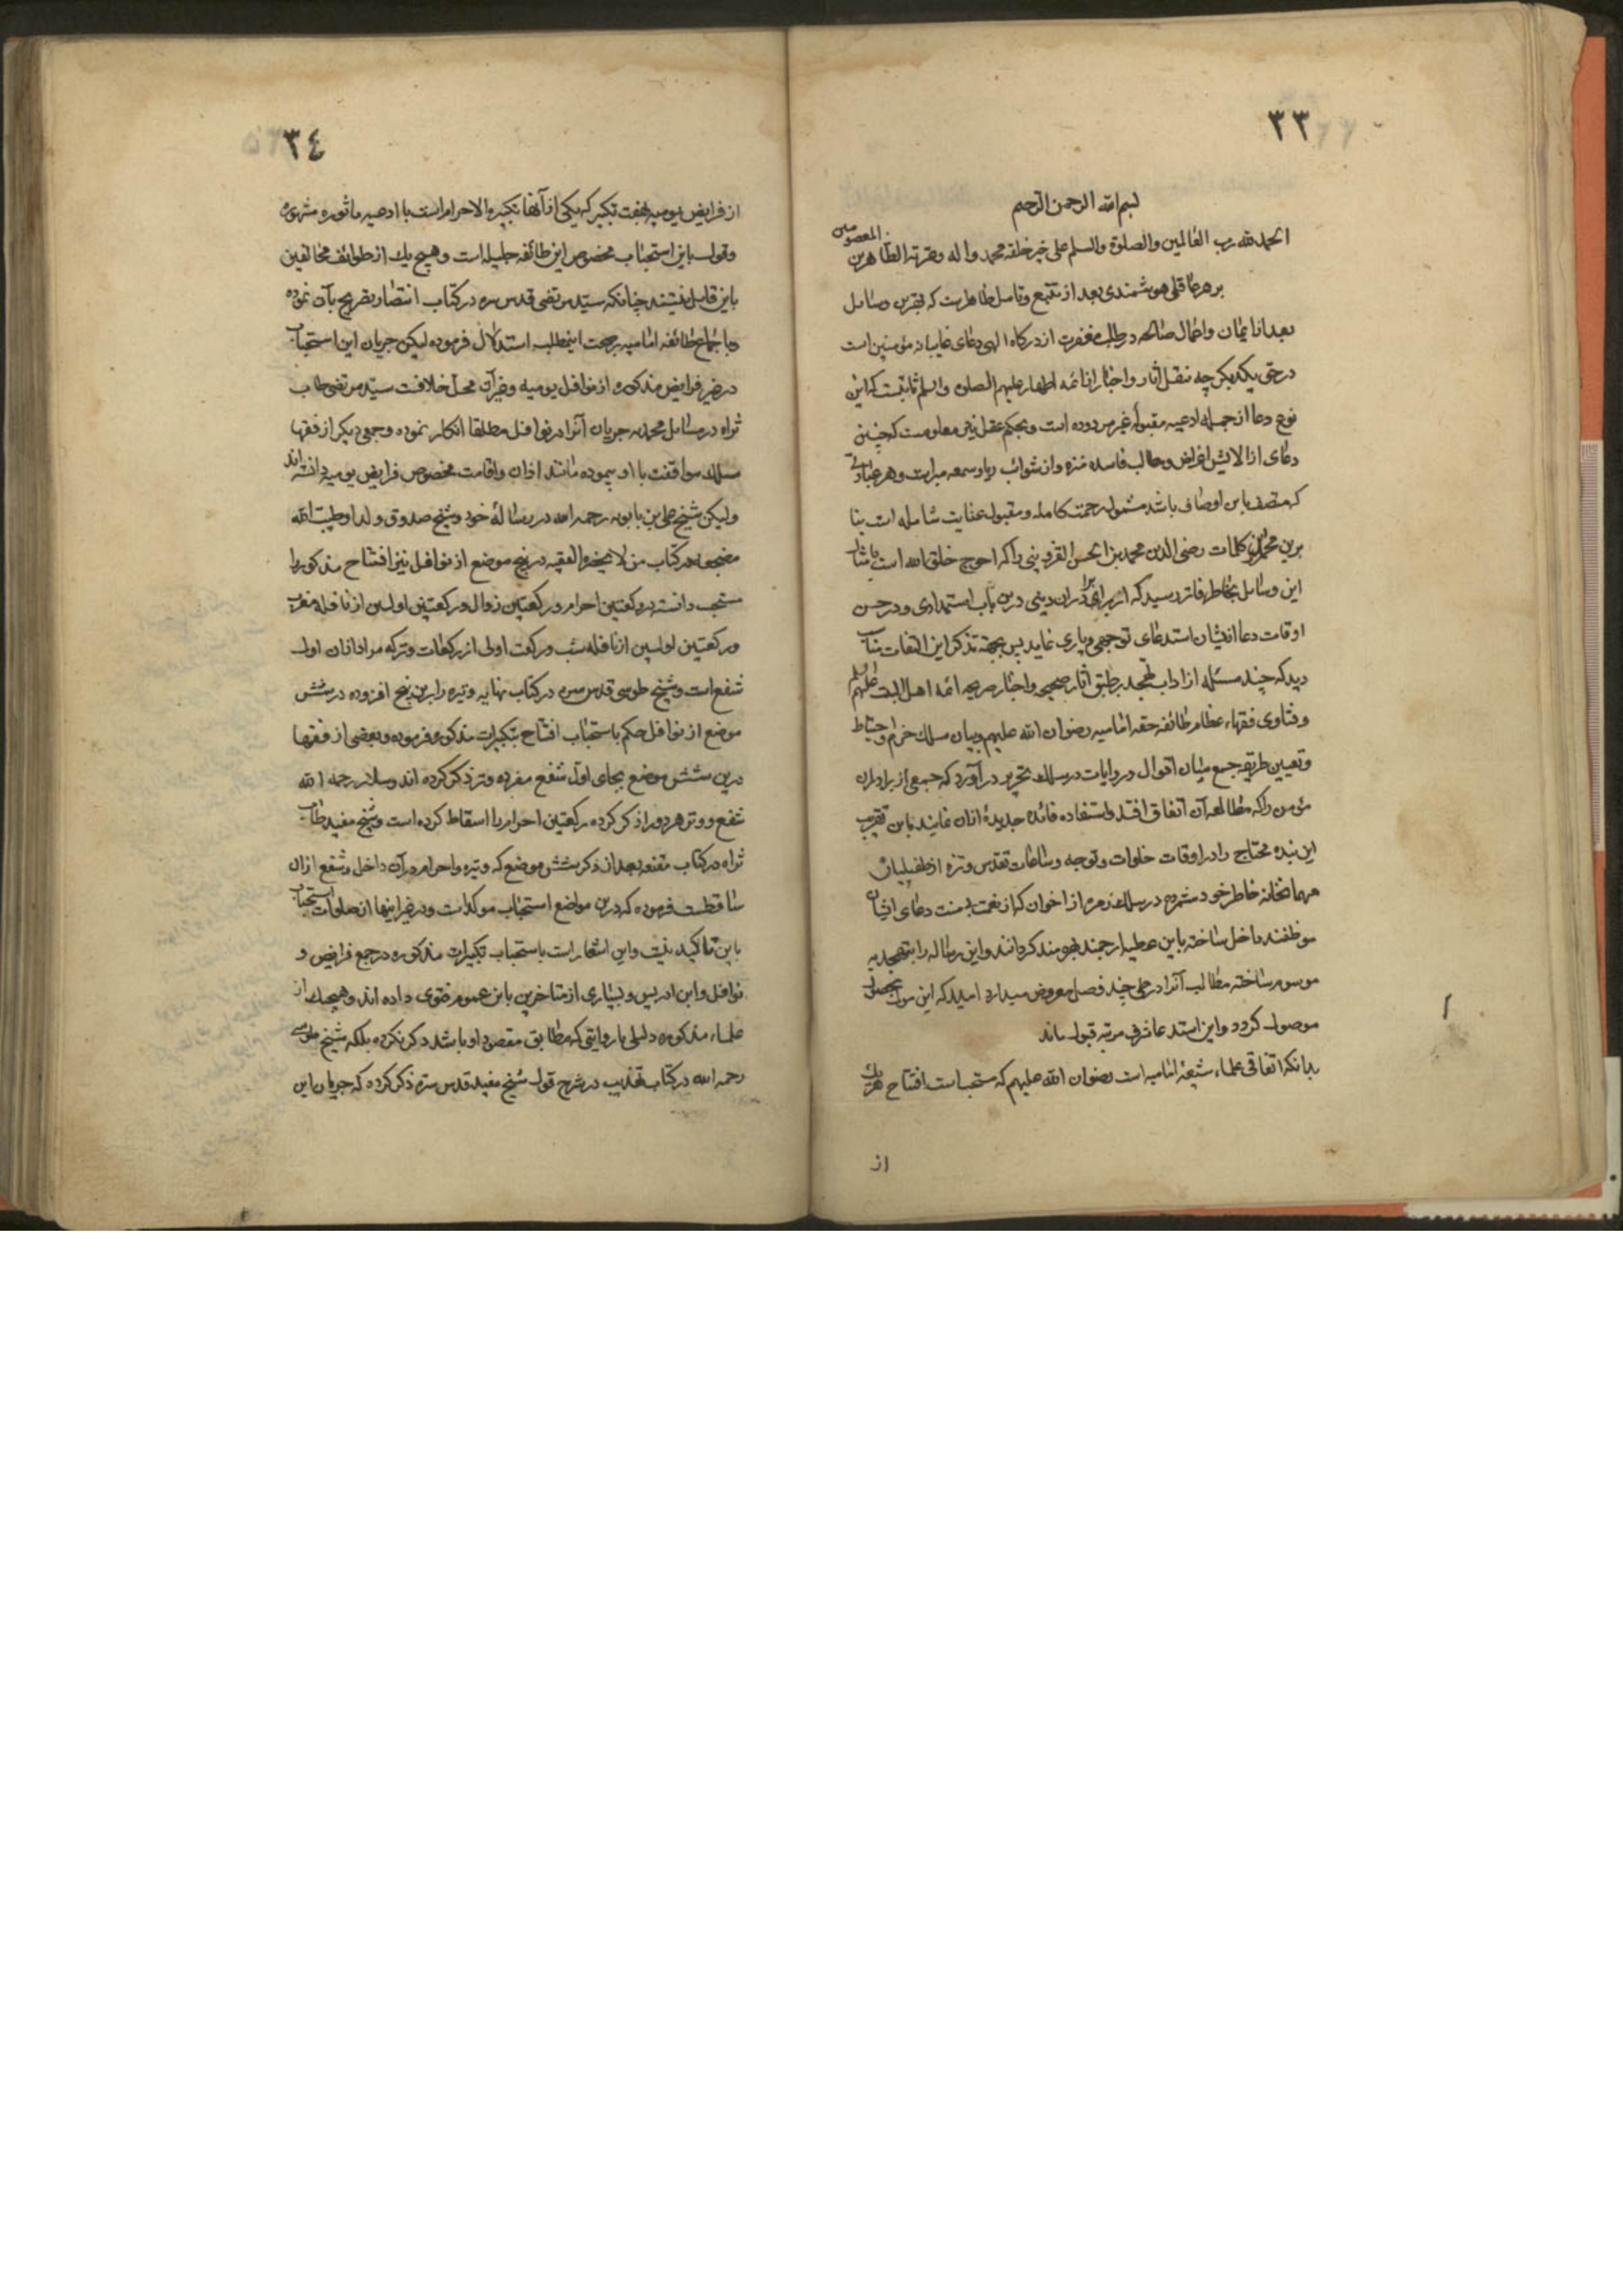 ٣٣
بسم الله الرحمن الرحیم
الحمد لله رب العالمین والصلوة والسلم علی خیر خلقه محمد واله وعترته الطاهرین المعصومین
بر هر عاقلی هوشمندی بعد از تتبع وتامل ظاهرست که بهترین وسایل
بعد از ایمان واعمال صالحه در طلب مغفرت از درکاه الهی دعای غایبانه مؤمنین است
در حق یکدیکر چه بنقل اثار واخبار از ائمه اطهار علیهم الصلوه والسلم ثابتست که این
نوع دعا از جمله ادعیه مقبولۀ غیر مردوده است وبحکم عقل نیز معلومست که چنین
دعای از الایش اغراض ومطالب فاسده منزه واز شوائب ریا وسمعه مبراست وهر عبادتی
که متصف باین اوصاف باشد مشمول رحمت کامله ومقبول عنایت شامله است بنا
برین محرر این کلمات رضی الدین محمد بن الحسن القزوینی را که احوج خلق الله است بامثال
این وسایل بخاطر فاتر رسید که از برای برادران دینی درین باب استمدادی ودر حسن
اوقات دعا از ایشان استدعای توجهی ویاری نماید پس بجهة تذکر این التفات مناسب
دید که چند مسئله از اداب تهجد بر طبق آثار صحیحه واخبار صریحه ائمه اهل البیت علیهم السلم
وفتاوی فقهاء عظام طائفه حقه امامیه رضوان الله علیهم وبیان مسلک حزم واحتیاط
وتعیین طریقه جمع میان اقوال وروایات در سلک تحریر در آورد که جمعی از برادران
مؤمن را که مطالعه آن اتفاق افتد واستفاده فائده جدیدۀ ازان نمایند باین تقریب
این بنده محتاج را در اوقات خلوات وتوجه وساعات تقدس وتنزه از طفیلیان
مهمانخانه خاطر خود شمرده در سلک زمره از اخوان که از نعمت بی منت دعای ایشان
موظفند داخل ساخته باین عطیه ارجمند بهره مند کردانند واین رساله را بتهجدیه
موسوم ساخته مطالب آنرا در طی چند فصل معروض میدارد امید که این مسول بحصول
موصول کردد واین استدعا شرف مرتبه قبول یابد
بدانکه اتفاقی علماء شیعۀ امامیه است رضوان الله علیهم که مستحب است افتتاح هر یک
از
٣٤
از فرایض یومیه بهفت تکبیر که یکی از آنها تکبیرة الاحرام است با ادعیه ماثوره مشهوره
وقول باین استحباب مخصوص این طائفه جلیله است وهیچ یک از طوائف مخالفین
باین قایل نیستند چنانکه سید مرتضی قدس سره در کتاب انتصار تصریح بآن نموده
وباجماع طائفه امامیه بر صحت اینمطلب استدلال فرموده لیکن جریان این استحباب
در غیر فرایض مذکوره از نوافل یومیه وغیر آن محل خلافت سید مرتضی طاب
ثراه در مسایل محمدیه جریان آنرا در نوافل مطلقا انکار نموده وجمعی دیکر از فقها
مسلک موافقت با او پیموده مانند اذان واقامت مخصوص فرایض یومیه دانسته اند
ولیکن شیخ علی بن بابویه رحمه الله در رسالۀ خود وشیخ صدوق ولد او طیب الله
مضجعهما در کتاب من لا یحضره الفقیه در پنج موضع از نوافل نیز افتتاح مذکور را
مستحب دانسته در رکعتین احرام ورکعتین زوال ورکعتین اولین از نافله مغرب
ورکعتین اولین از نافله شب ورکعت اولی از رکعات وتر که مراد ازان اول
شفع است وشیخ طوسی قدس سره در کتاب نهایه وتیره را برین پنج افزوده در شش
موضع از نوافل حکم باستحباب افتتاح بتکبیرات مذکوره فرموده وبعضی از فقها
درین شش موضع بجای اول شفع مفرده وتر ذکر کرده اند وسلار رحمه الله
شفع ووتر هر دو را ذکر کرده رکعتین احرام را اسقاط کرده است وشیخ مفید طاب
ثراه در کتاب مقنعه بعد از ذکر شش موضع که وتیره واحرام در آن داخل وشفع ازان
ساقطست فرموده که درین مواضع استحباب موکدست ودر غیر اینها از صلوات استحباب
باین تاکید نیست واین اشعار است باستحباب تکبیرات مذکوره در جمع فرایض و
نوافل وابن ادریس وبسیاری از متاخرین باین عموم فتوی داده اند وهیچیک از
علماء مذکوره دلیلی یا روایتی که مطابق مقصود او باشد ذکر نکرده بلکه شیخ طوسی
رحمه الله در کتاب تهذیب در شرح قول شیخ مفید قدس سره ذکر کرده که جریان این